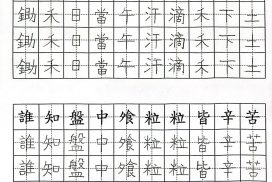 鋤禾日當午汗滴禾下土
鋤禾日當午汗滴禾下土
鋤禾日當午汗滴禾下土
誰知盤中飧粒粒皆辛苦
誰知盤中飧粒粒皆辛苦
誰知盤中飧粒粒皆辛苦